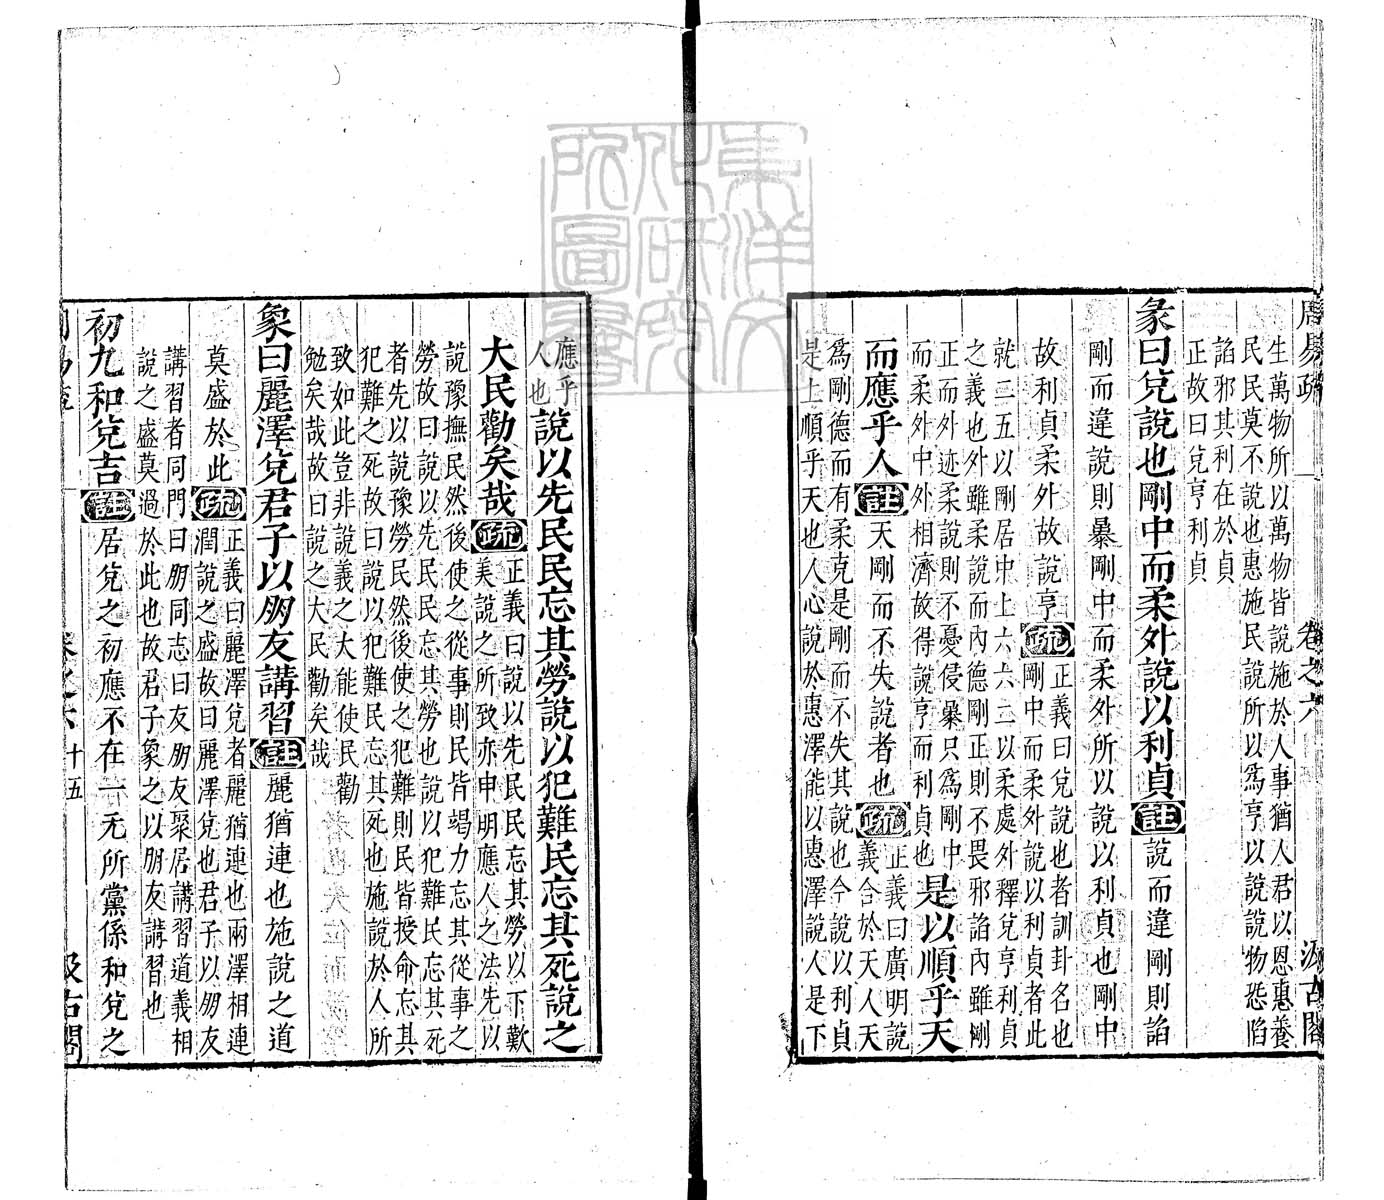 周易疏 卷之六 汲古閣
生萬物所以萬物皆說施於人事猶人君以恩惠養
民民莫不說也惠施民說所以爲亨以說說物恐陷
諂邪其利在於貞
正故曰兌亨利貞
彖曰兌說也剛中而柔外說以利貞註說而違剛則諂
剛而違說則暴剛中而柔外所以說以利貞也剛中
故利貞柔外故說亨疏正義曰兌說也者訓卦名也
剛中而柔外說以利貞者此
就二五以剛居中上六六三以柔處外釋兌亨利貞
之義也外雖柔說而內德剛正則不畏邪諂內雖剛
正而外迹柔說則不憂侵暴只爲剛中
而柔外中外相濟故得說亨而利貞也是以順乎天
而應乎人註天剛而不失說者也疏正義曰廣明說
義合於天人天
爲剛德而有柔克是剛而不失其說也今說以利貞
是上順乎天也人心說於惠澤能以惠澤說人是下
應乎
人也說以先民民忘其勞說以犯難民忘其死說之
大民勸矣哉疏正義曰說以先民民忘其勞以下歎
美說之所致亦申明應人之法先以
說豫撫民然後使之從事則民皆竭力忘其從事之
勞故曰說以先民民忘其勞也說以犯難民忘其死
者先以說豫勞民然後使之犯難則民皆授命忘其
犯難之死故曰說以犯難民忘其死也施說於人所
致如此豈非說義之大能使民勸
勉矣哉故曰說之大民勸矣哉
象曰麗澤兌君子以朋友講習註麗猶連也施說之道
莫盛於此疏正義曰麗澤兌者麗猶連也兩澤相連
潤說之盛故曰麗澤兌也君子以朋友
講習者同門曰朋同志曰友朋友聚居講習道義相
說之盛莫過於此也故君子象之以朋友講習也
初九和兌吉註居兌之初應不在一无所黨係和兌之
周易疏 卷之六 十五 汲古閣
東洋文化研究所圖書